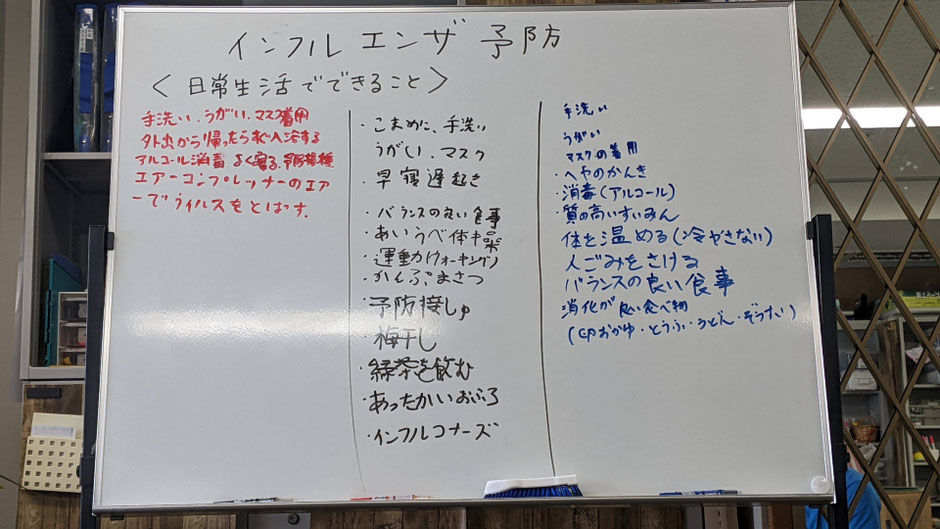 インフルエンザ 予防
<日常生活でできること>
手洗い、うがい、マスク着用
外出から帰ったらすぐ入浴する
アルコール消毒 よく寝る、予防接種
エアーコンプレッサーのエア
ーでウイルスをとばす.
・こまめに、手洗い
うがい、マスク
・早寝遅起き
・バランスの良い食事
・あいうべ体操
・運動カ ウォーキング
・かんぷまさつ
・予防接しゅ
・梅干し
・緑茶を飲む
・あったかいおふろ
・インフルコナーズ
手洗い
うがい
マスクの着用
・へやのかんき
・消毒(アルコール)
・質の高いすいみん
体を温める(冷やさない)
人ごみをさける
バランスの良い食事
消化が良い食べ物
(おかゆ・とうふ・うどん・ぞうすい)